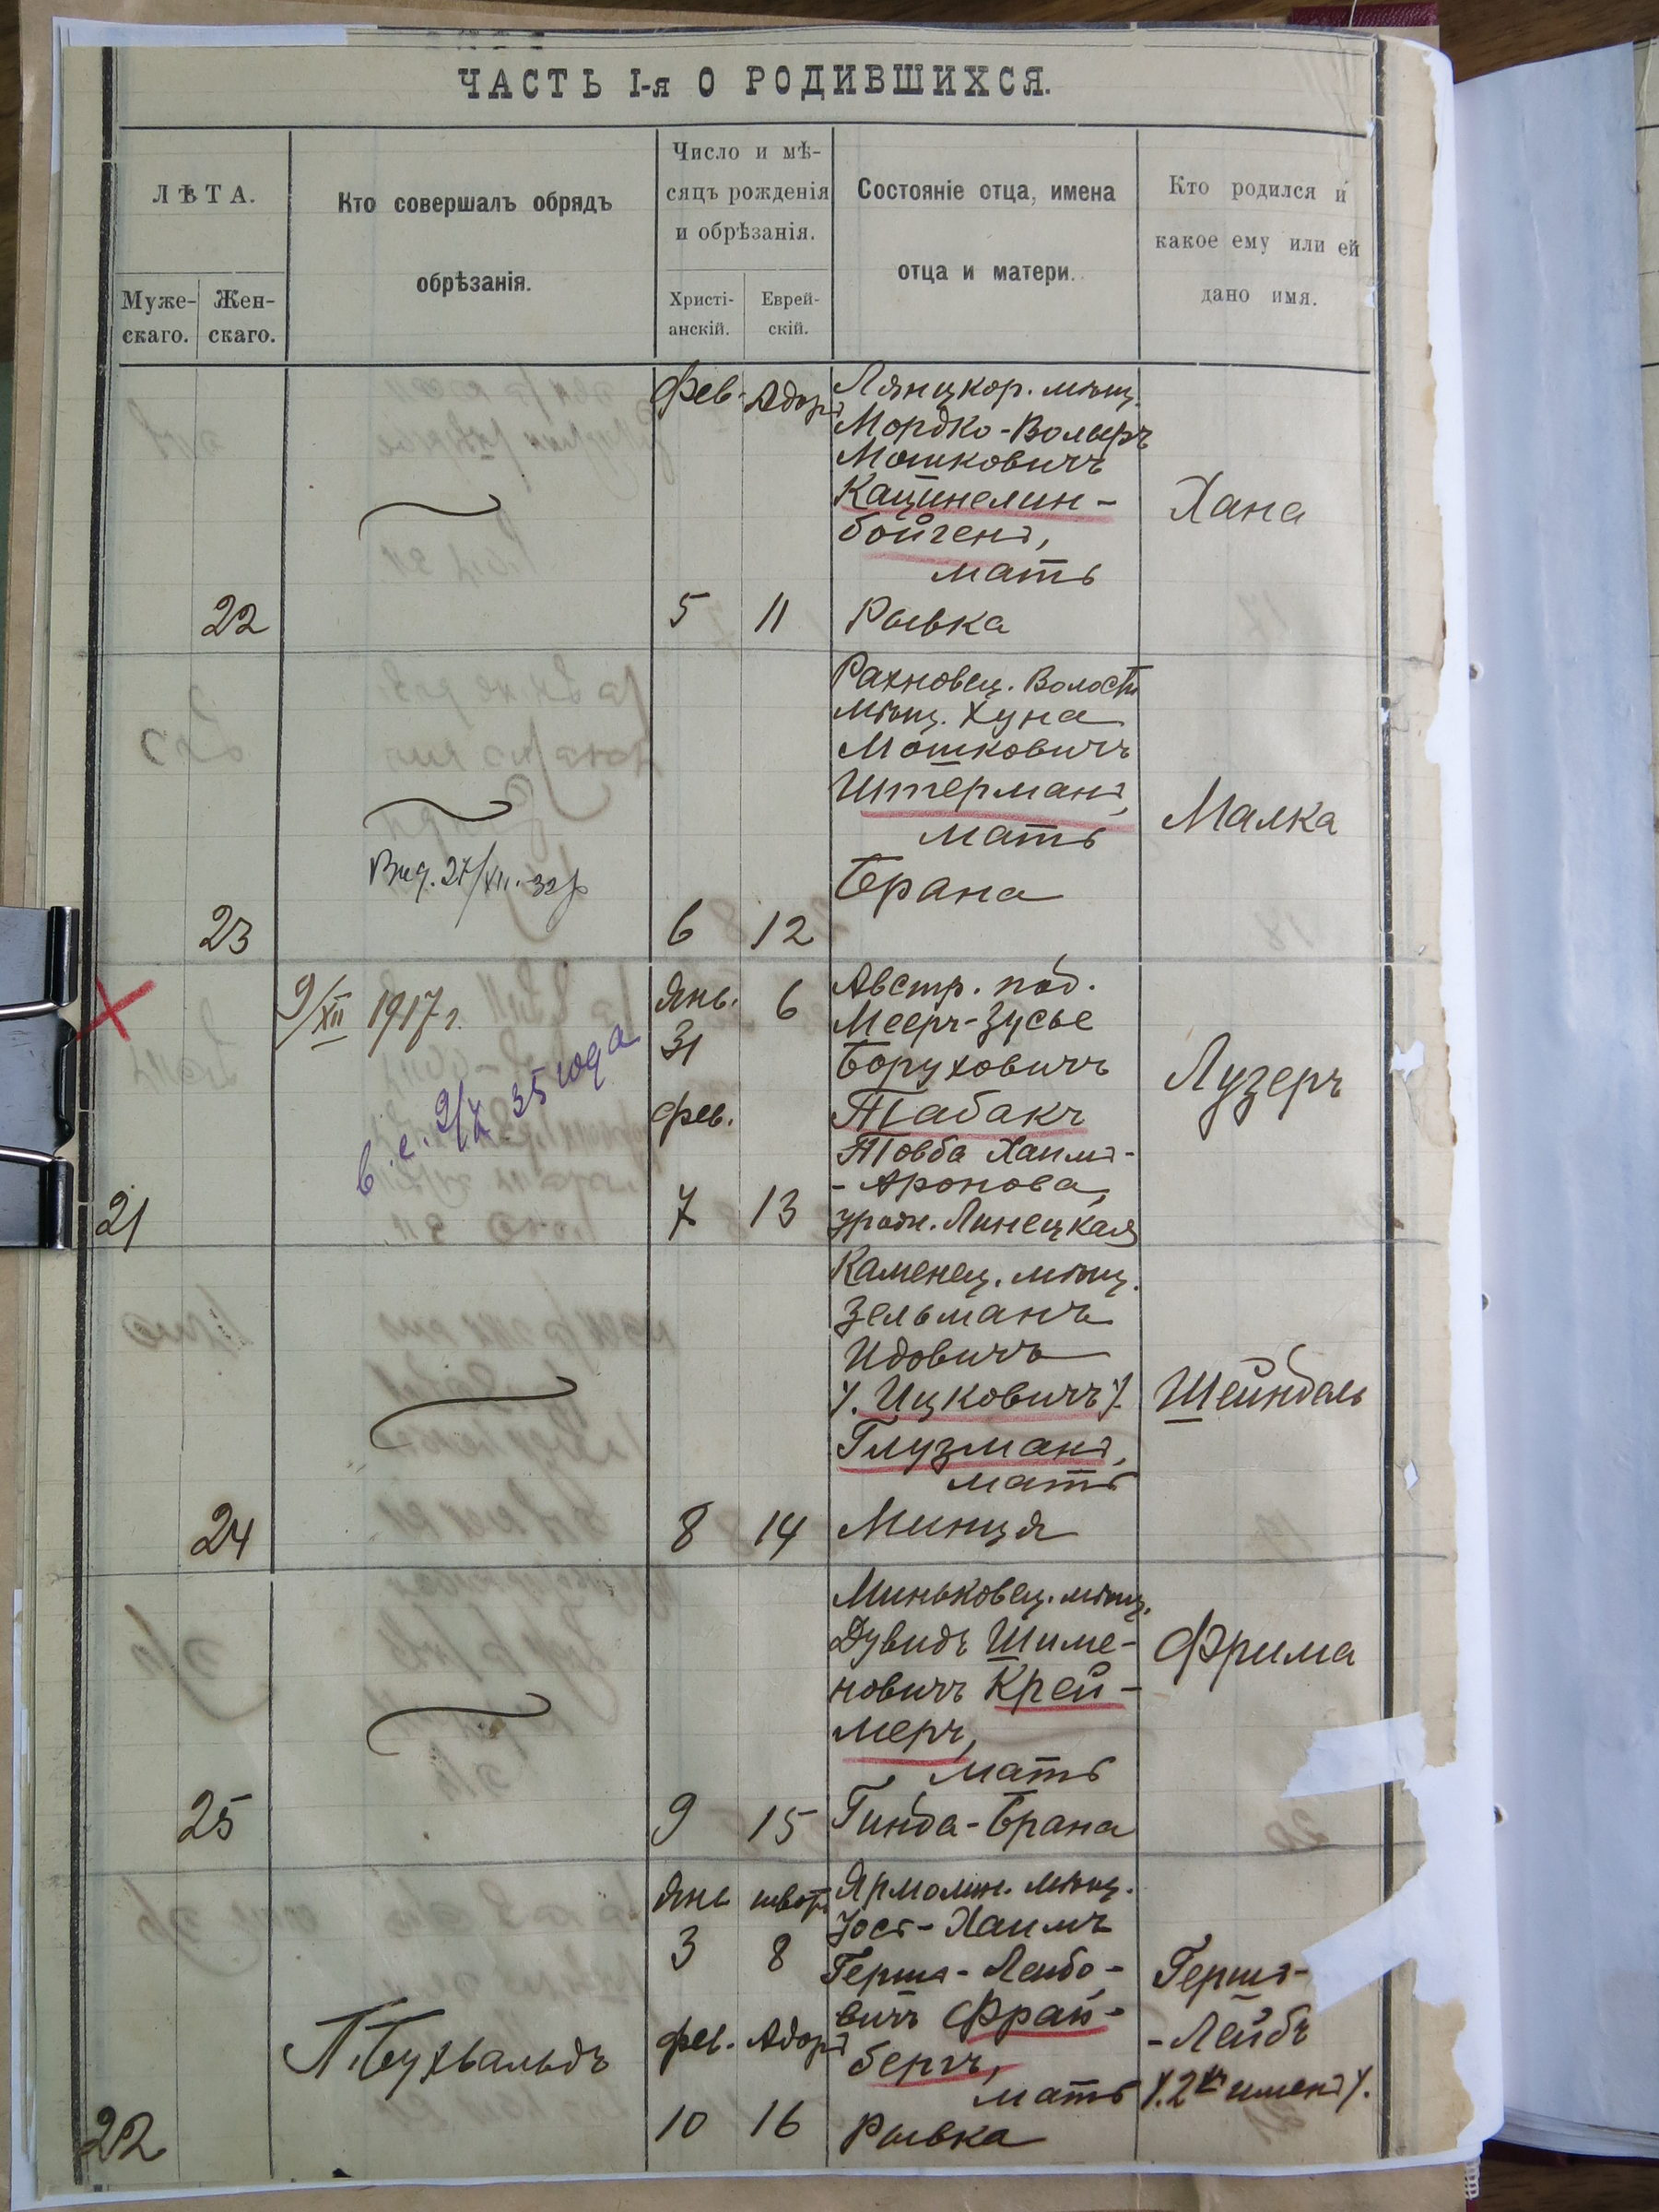 ЧАСТЬ I-я О РОДИВШИХСЯ.
ЛѢТА.
Муже-
скаго.
Жен-
скаго.
Кто совершалъ обрядъ
обрѣзанія.
Число и мѣ-
сяцъ рожденія
и обрѣзанія.
Христі-
анскій.
Еврей-
скій.
Состояніе отца, имена
отца и матери.
Кто родился и
какое ему или ей
дано имя.
Фев. Адаръ
Лянцкор. мѣщ.
Мордко-Вольфъ
Мошковичъ
Кацинелин-
бойгенъ,
мать
Рывка
Хана
22
5 11
Рахновец. Волости
мѣщ. Хуна
Мошковичъ
Штерманъ,
мать
Брана
Малка
Выд. 27/XII.-32 г
23
6 12
9/XII 1917 г.
в. с. 9/X 35 года
Янв. 6
31
Фев.
7 13
Австр. под.
Мееръ-Зусье
Боруховичъ
Табакъ
Товба Хаимъ-
-Аронова,
урожд. Линецкая
Лузеръ
21
Каменец. мѣщ.
Зельманъ
Идовичъ
/. Ицковичъ ./
Глузманъ,
мать
Минця
Шейндель
24
8 14
Миньковец. мѣщ.
Дувидъ Шиме-
новичъ Крей-
меръ,
мать
Гинда-Брана
Фрима
25
9 15
Янв шватъ
3 8
Фев. Адаръ
10 16
Ярмолин. мѣщ.
Іось-Хаимъ
Гершъ-Лейбо-
вичъ Фрай-
бергъ,
мать
Рывка
Гершъ-
-Лейбъ
/. 2хъ именъ ./
П. Бухвальдъ
22